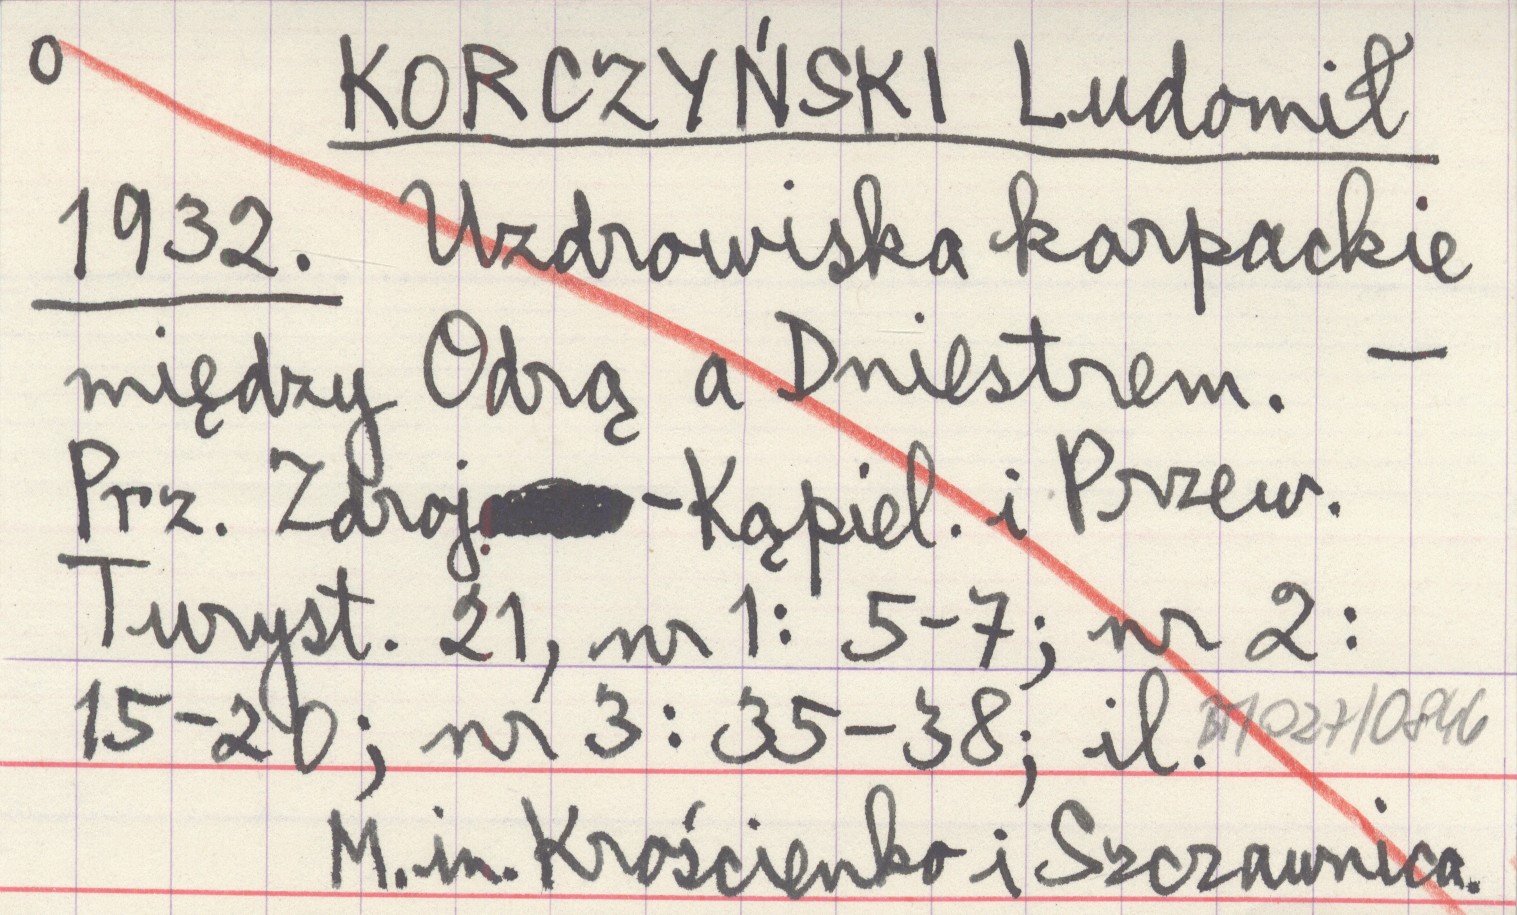 o KORCZYŃSKI Ludomił
1932. Uzdrowiska karpackie
między Odrą a Dniestrem. —
Prz. Zdroj -Kąpiel. i Przew.
Turyst. 21, nr 1: 5-7; nr 2:
15-20; nr 3: 35-38; il.
M.in. Krościenko i Szczawnica.